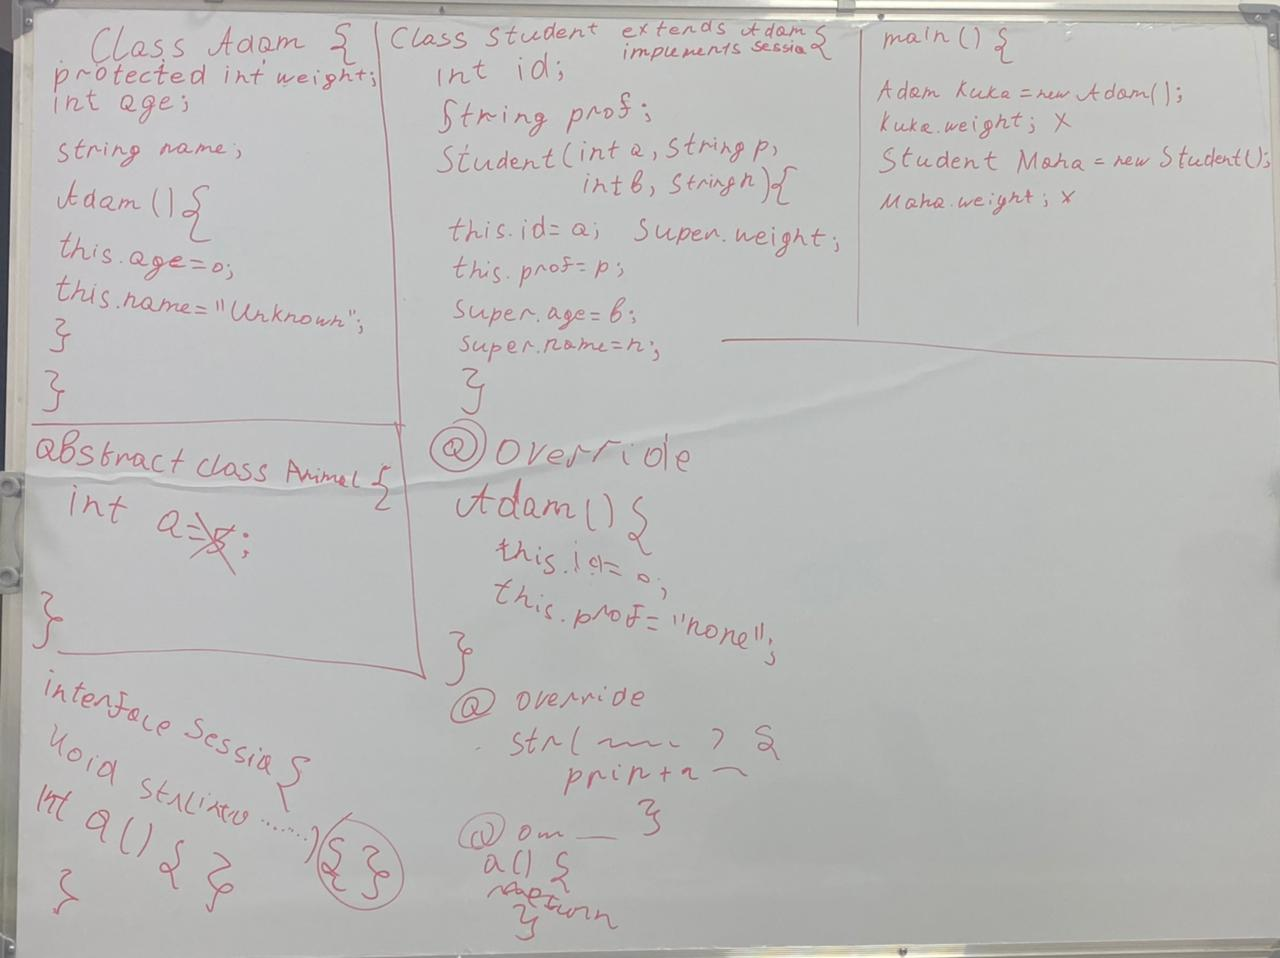 Class Adam {
protected int weight;
int age;
string name;
Adam () {
this.age=0;
this.name="Unknown";
}
}
abstract class Animal {
int a=5;
}
interface Sessia {
void str(int
int a() { }
{ }
}
Class Student extends Adam
implements Sessia {
int id;
String prof;
Student(int a, String p,
int b, String n) {
this.id= a; Super.weight;
this.prof= p;
Super.age= b;
super.name=n;
}
@ override
Adam () {
this.id= 0;
this.prof= "none";
}
@ override
str( ) {
print
}
@
a() {
return
}
main () {
Adam Kuka = new Adam();
Kuka.weight; X
Student Maha = new Student();
Maha.weight; X